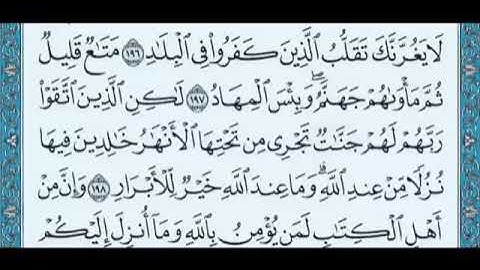 لَا يَغُرَّنَّكَ تَقَلُّبُ ٱلَّذِينَ كَفَرُوا۟ فِى ٱلْبِلَٰدِ ١٩٦ مَتَٰعٌ قَلِيلٌ
ثُمَّ مَأْوَىٰهُمْ جَهَنَّمُ ۚ وَبِئْسَ ٱلْمِهَادُ ١٩٧ لَٰكِنِ ٱلَّذِينَ ٱتَّقَوْا۟
رَبَّهُمْ لَهُمْ جَنَّٰتٌ تَجْرِى مِن تَحْتِهَا ٱلْأَنْهَٰرُ خَٰلِدِينَ فِيهَا
نُزُلًا مِّنْ عِندِ ٱللَّهِ ۗ وَمَا عِندَ ٱللَّهِ خَيْرٌ لِّلْأَبْرَارِ ١٩٨ وَإِنَّ مِنْ
أَهْلِ ٱلْكِتَٰبِ لَمَن يُؤْمِنُ بِٱللَّهِ وَمَآ أُنزِلَ إِلَيْكُمْ